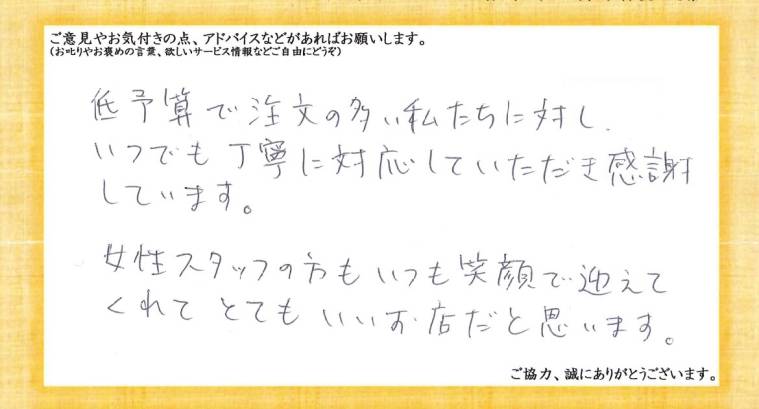 ご意見やお気付きの点、アドバイスなどがあればお願いします。
（お叱りやお褒めの言葉、欲しいサービス情報などご自由にどうぞ）
低予算で注文の多い私たちに対し、
いつでも丁寧に対応していただき感謝
しています。
女性スタッフの方もいつも笑顔で迎えて
くれてとてもいいお店だと思います。
ご協力、誠にありがとうございます。